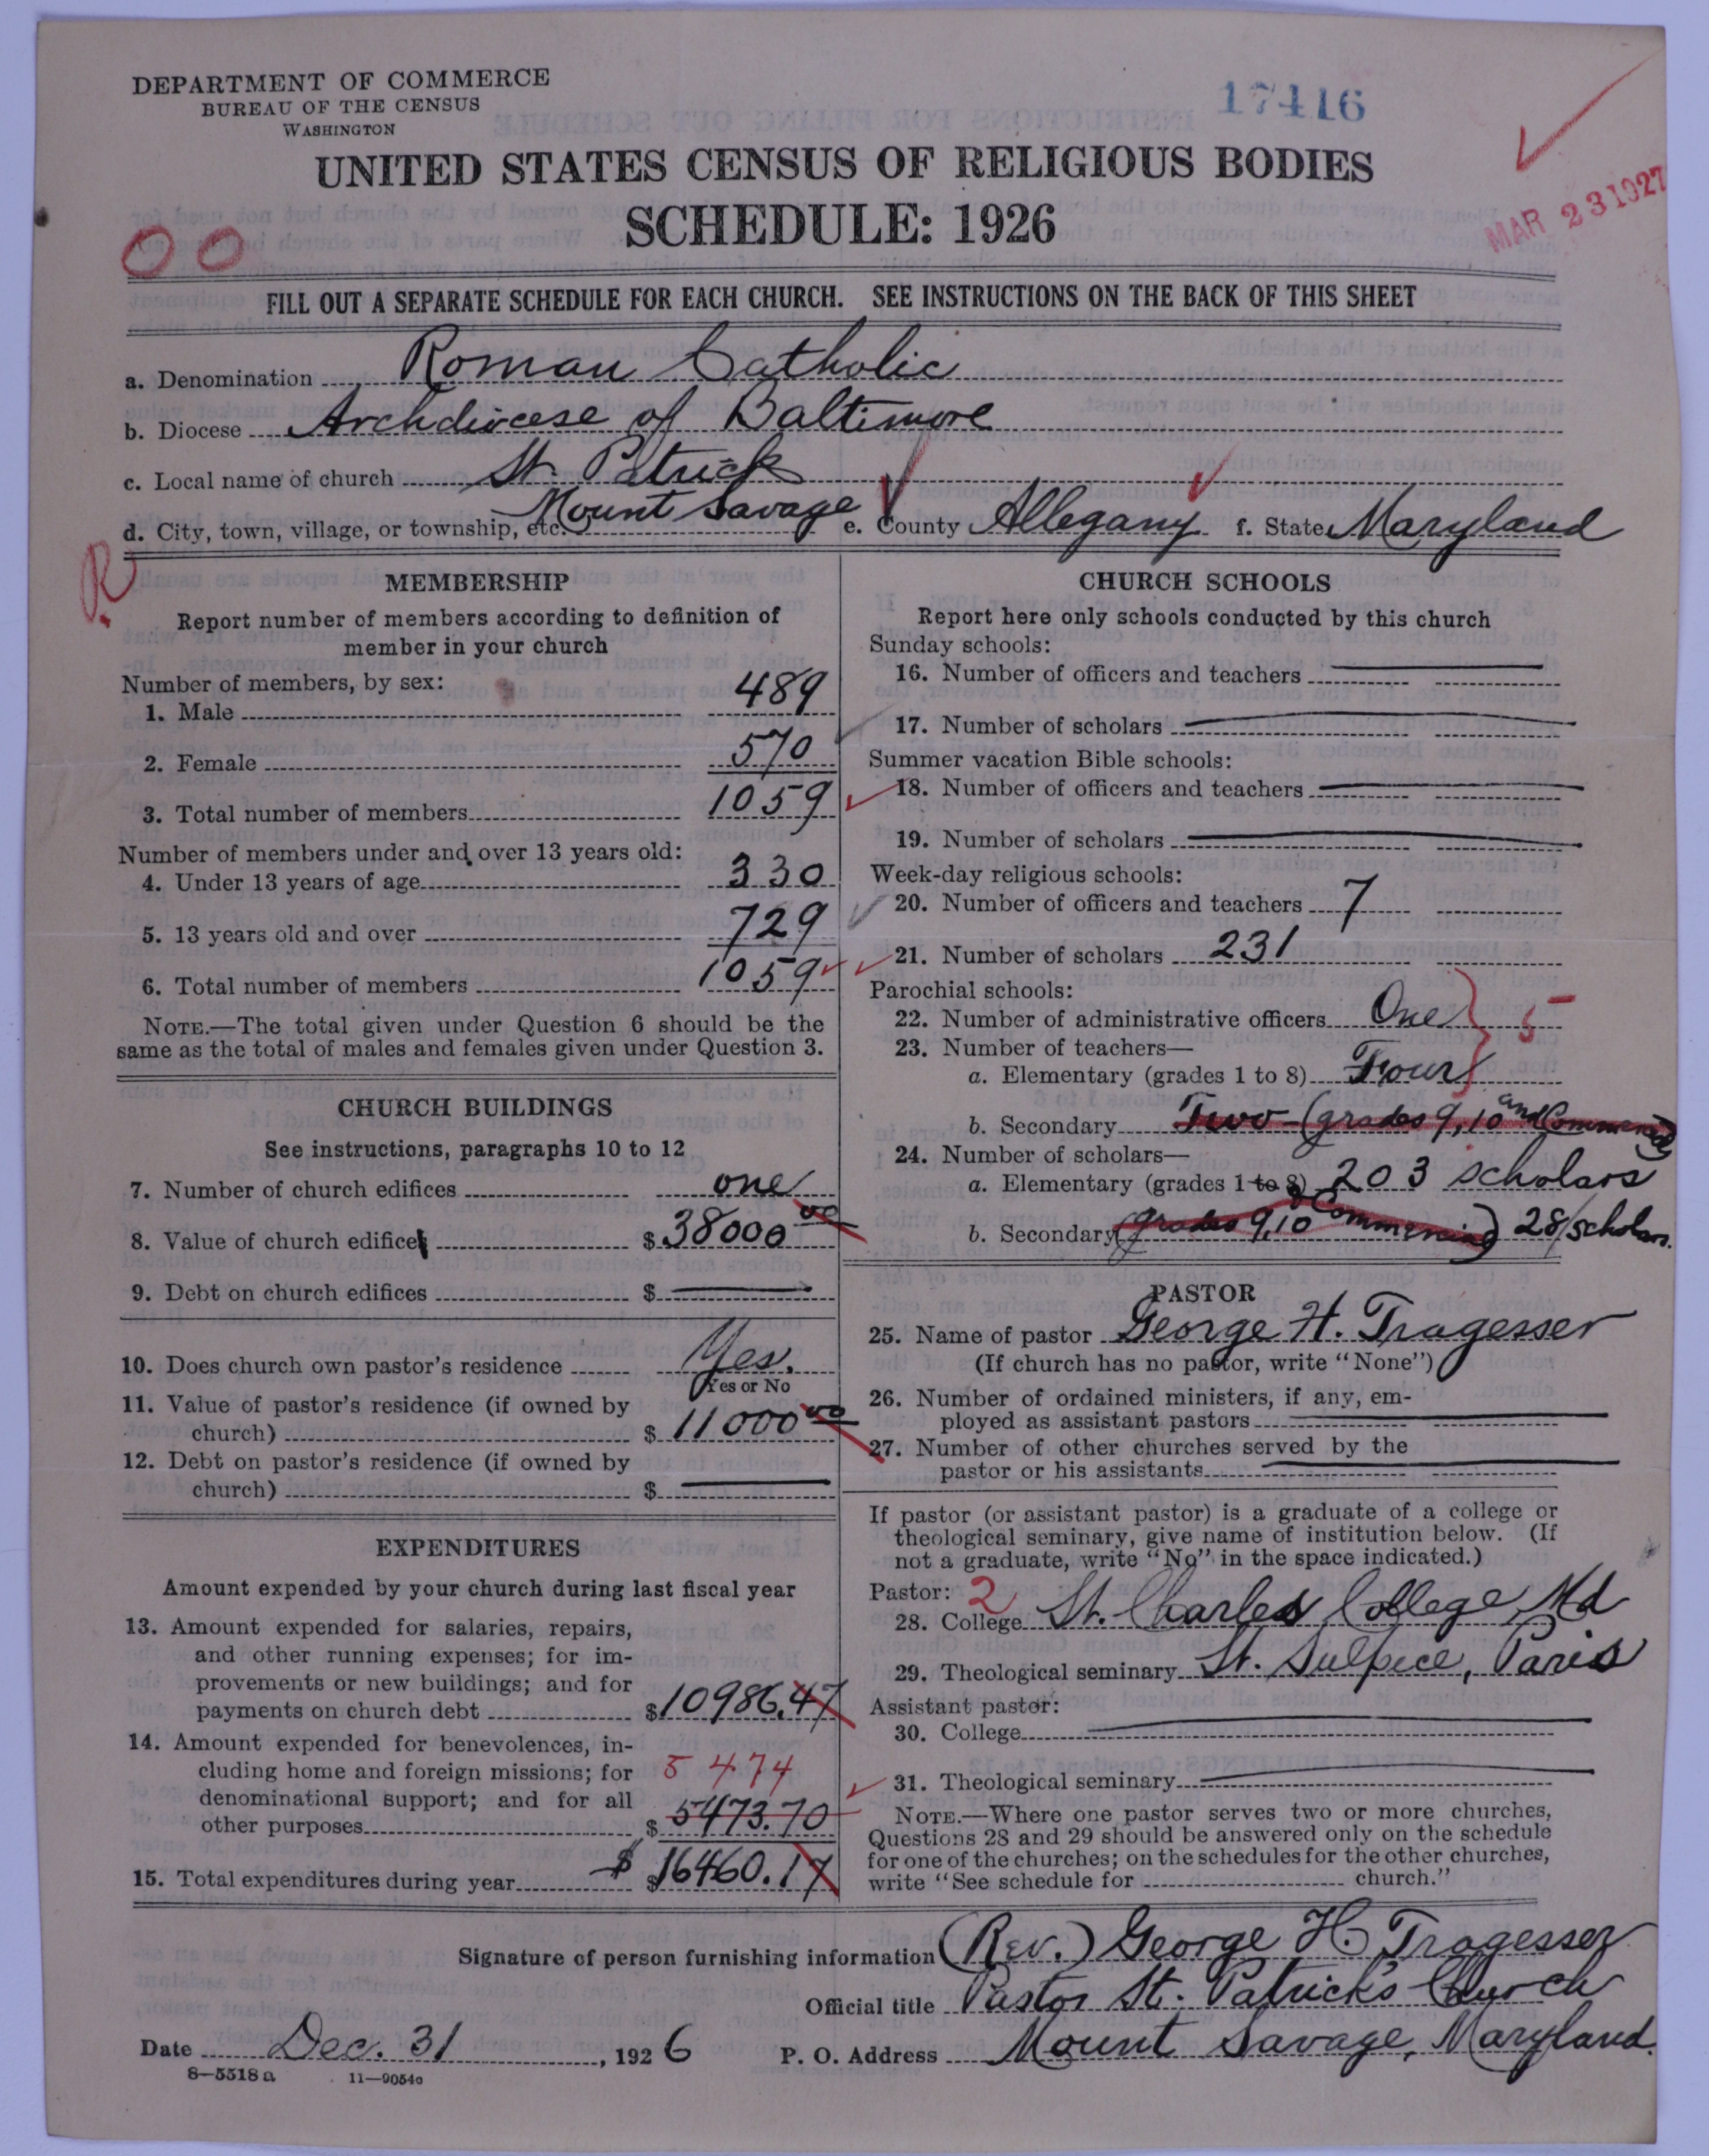 DEPARTMENT OF COMMERCE
BUREAU OF THE CENSUS
WASHINGTON
17416
UNITED STATES CENSUS OF RELIGIOUS BODIES
SCHEDULE: 1926
MAR 23 1927
00
FILL OUT A SEPARATE SCHEDULE FOR EACH CHURCH. SEE INSTRUCTIONS ON THE BACK OF THIS SHEET
a. Denomination Roman Catholic
b. Diocese Archdiocese of Baltimore
c. Local name of church St. Patrick
d. City, town, village, or township, etc. Mount Savage e. County Allegany f. State Maryland
R
MEMBERSHIP
Report number of members according to definition of
member in your church
Number of members, by sex:
1. Male 489
2. Female 570
3. Total number of members 1059
Number of members under and over 13 years old:
4. Under 13 years of age 330
5. 13 years old and over 729
6. Total number of members 1059
NOTE.—The total given under Question 6 should be the
same as the total of males and females given under Question 3.
CHURCH BUILDINGS
See instructions, paragraphs 10 to 12
7. Number of church edifices one
8. Value of church edifice $ 38000 00
9. Debt on church edifices $ —
10. Does church own pastor's residence Yes.
Yes or No
11. Value of pastor's residence (if owned by
church) $ 11000 00
12. Debt on pastor's residence (if owned by
church) $ —
EXPENDITURES
Amount expended by your church during last fiscal year
13. Amount expended for salaries, repairs,
and other running expenses; for im-
provements or new buildings; and for
payments on church debt $ 10986.47
14. Amount expended for benevolences, in-
cluding home and foreign missions; for 5 474
denominational support; and for all
other purposes $ 5473.70
15. Total expenditures during year $ $ 16460.17
CHURCH SCHOOLS
Report here only schools conducted by this church
Sunday schools:
16. Number of officers and teachers —
17. Number of scholars —
Summer vacation Bible schools:
18. Number of officers and teachers —
19. Number of scholars —
Week-day religious schools:
20. Number of officers and teachers 7
21. Number of scholars 231
Parochial schools:
22. Number of administrative officers One 5
23. Number of teachers—
a. Elementary (grades 1 to 8) Four
b. Secondary Two (grades 9, 10 and Commercial)
24. Number of scholars—
a. Elementary (grades 1 to 8) 203 scholars
b. Secondary (grades 9, 10 & Commercial) 28 scholars.
PASTOR
25. Name of pastor George H. Tragesser
(If church has no pastor, write "None")
26. Number of ordained ministers, if any, em-
ployed as assistant pastors —
27. Number of other churches served by the
pastor or his assistants —
If pastor (or assistant pastor) is a graduate of a college or
theological seminary, give name of institution below. (If
not a graduate, write "No" in the space indicated.)
Pastor: 2
28. College St. Charles College, Md
29. Theological seminary St. Sulpice, Paris
Assistant pastor:
30. College —
31. Theological seminary —
NOTE.—Where one pastor serves two or more churches,
Questions 28 and 29 should be answered only on the schedule
for one of the churches; on the schedules for the other churches,
write "See schedule for church."
Signature of person furnishing information (Rev.) George H. Tragesser
Official title Pastor St. Patrick's Church
Date Dec. 31, 1926 P. O. Address Mount Savage, Maryland.
8—5518 a 11—9054a